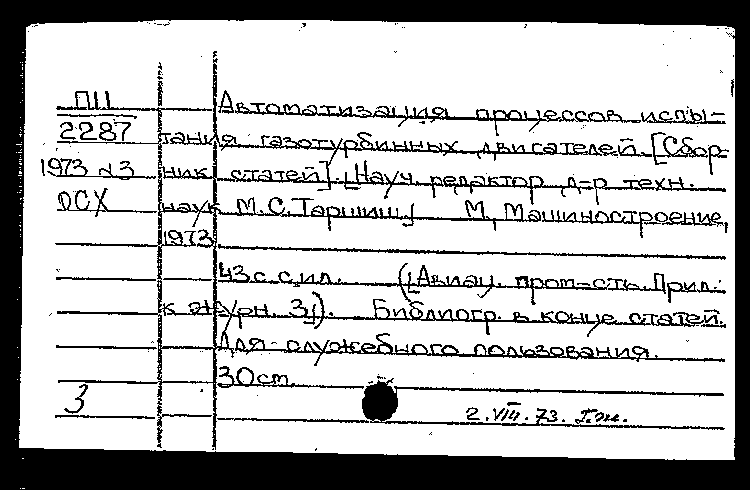 П11
2287
1973 №3
ОСХ
Автоматизация процессов испы-
тания газотурбинных двигателей. [Сбор-
ник статей]. [Науч. редактор д-р техн.
наук М.С. Таршиш.] М, Машиностроение,
1973
43 с. с ил. ([Авиац. пром-сть. Прил.
к журн. 3]). Библиогр. в конце статей.
Для служебного пользования.
30 см.
3
2.VIII.73.